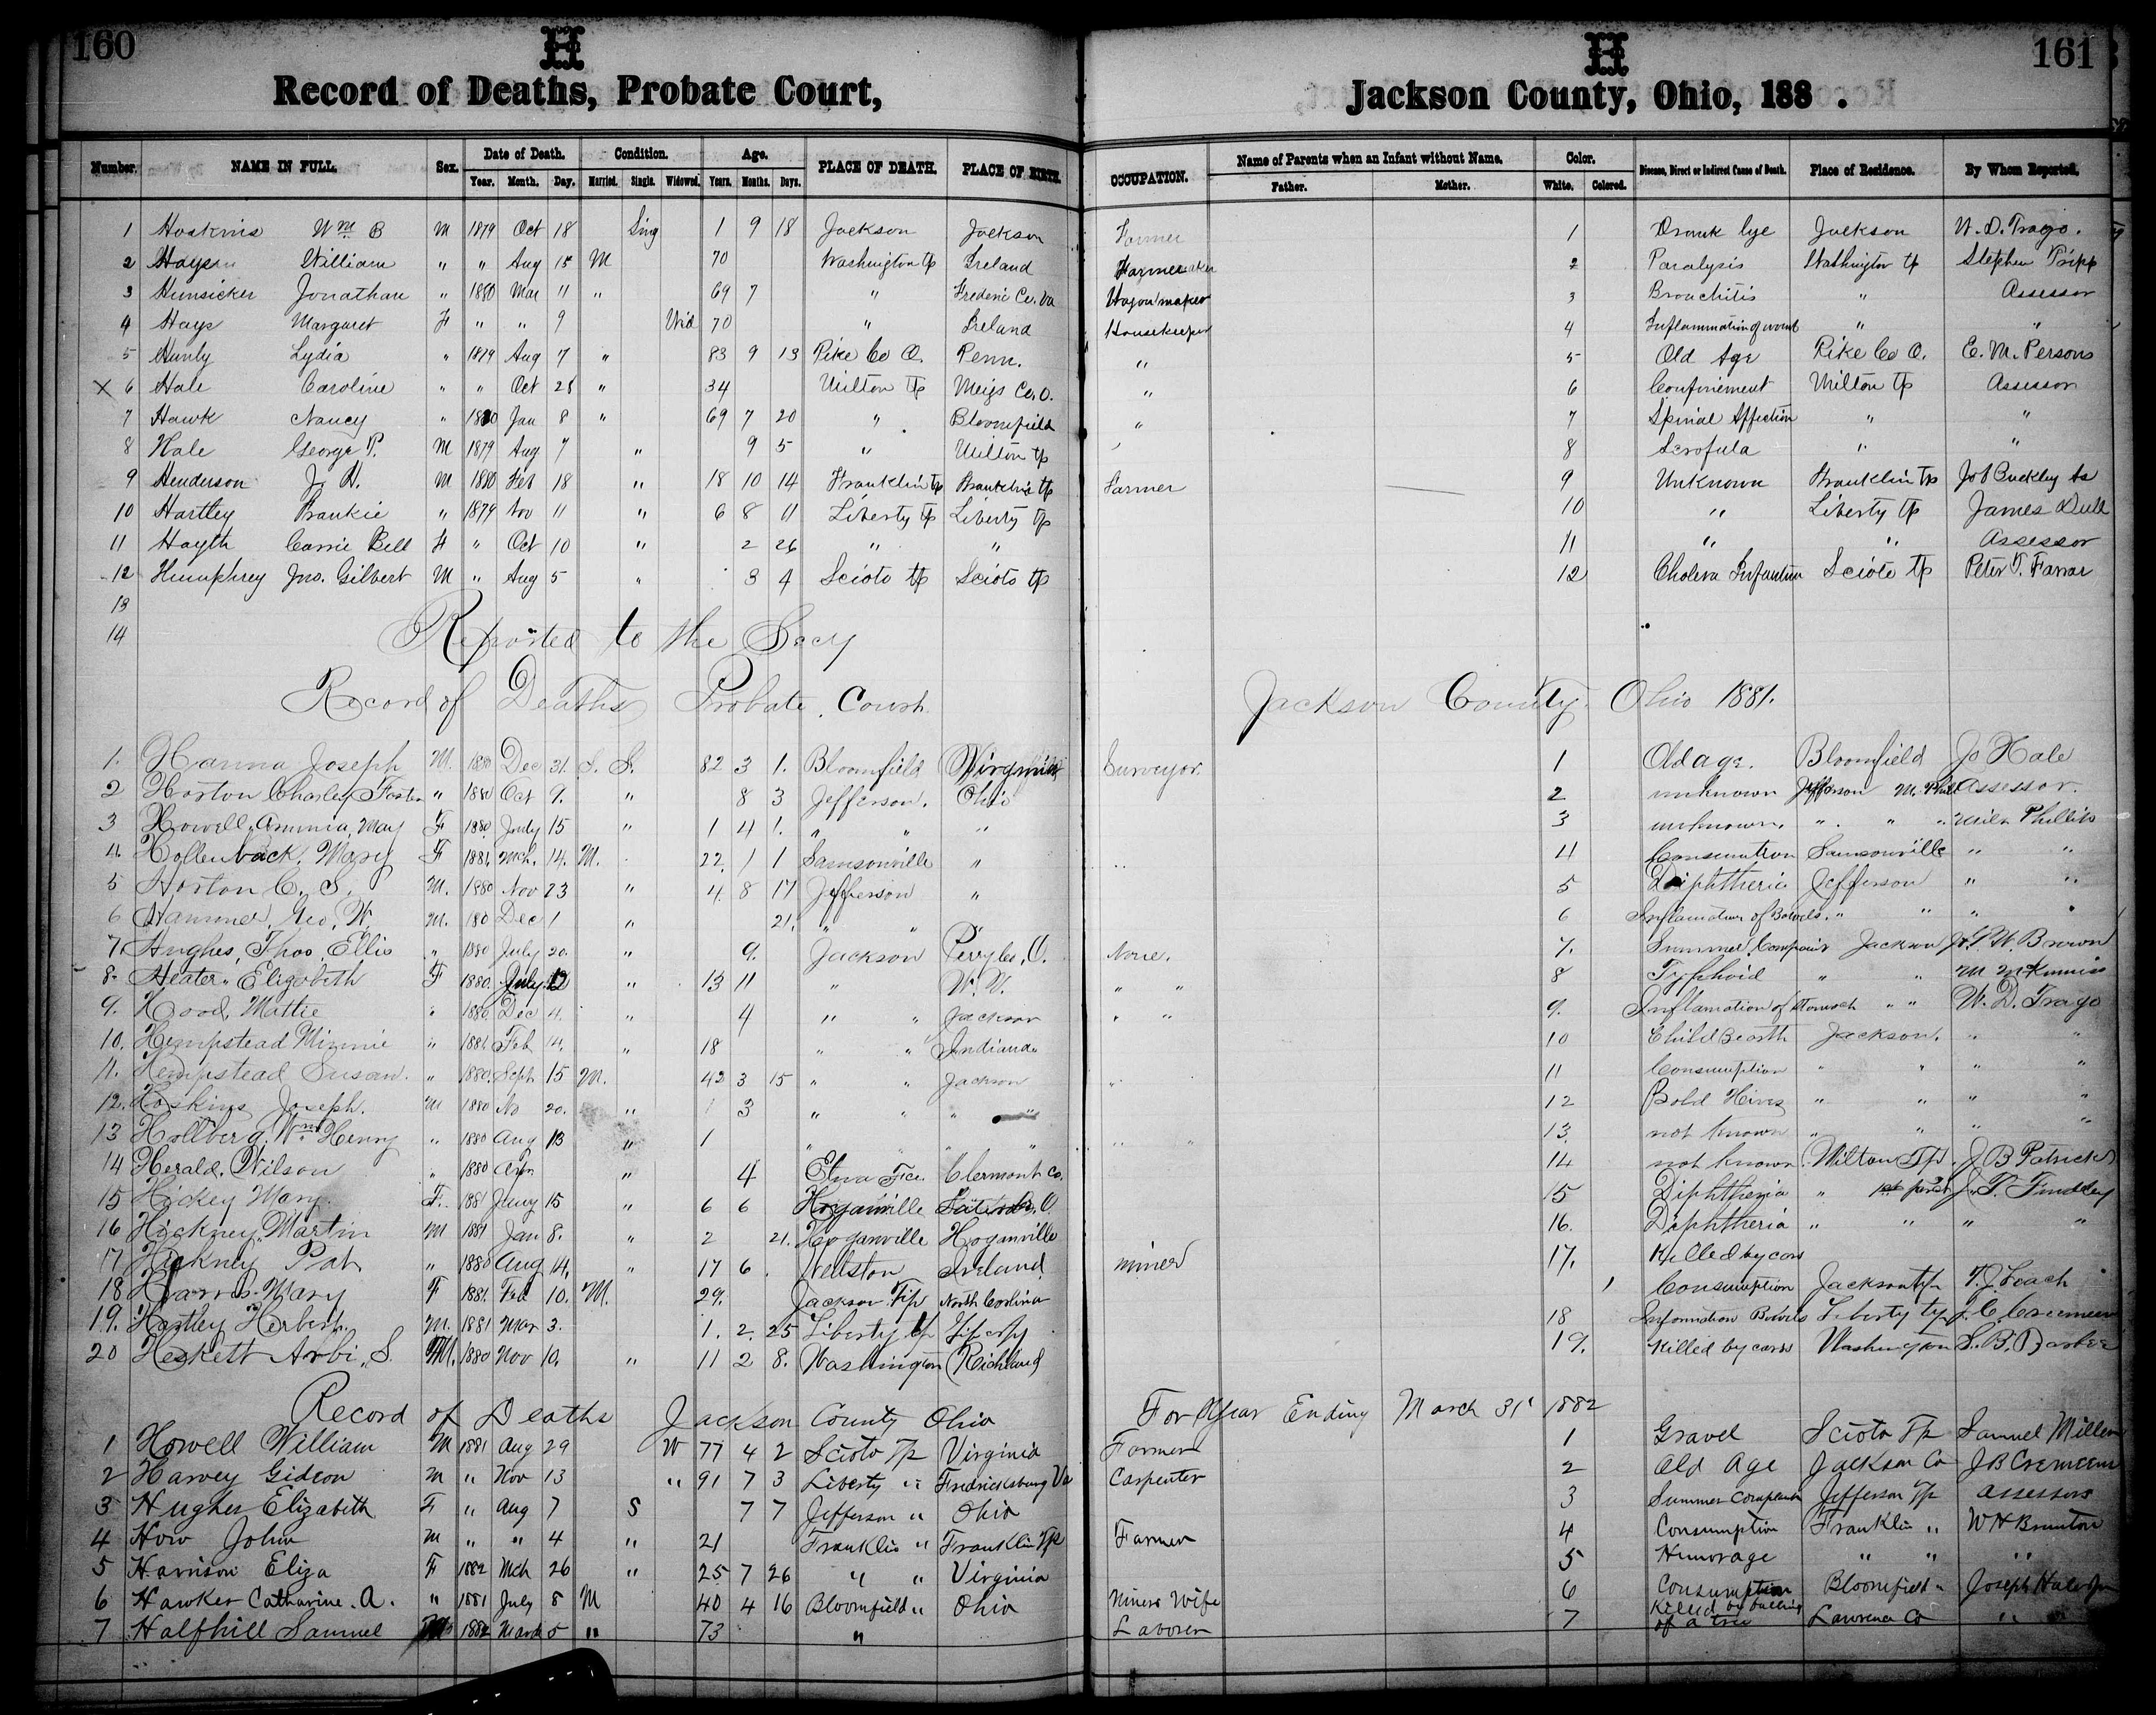 160 H
Record of Deaths, Probate Court,
H 161
Jackson County, Ohio, 188 .
Number. NAME IN FULL. Sex. Date of Death. Condition. Age. PLACE OF DEATH. PLACE OF BIRTH. OCCUPATION. Name of Parents when an Infant without Name. Color. Disease, Direct or Indirect Cause of Death. Place of Residence. By Whom Reported.
Year. Month. Day. Married. Single. Widowed. Years. Months. Days. Father. Mother. White. Colored.
1 Hoskins Wm. B M 1879 Oct 18 Sing 1 9 18 Jackson Jackson Farmer 1 Drank lye Jackson W. D. Trago.
2 William " " Aug 15 M 70 Washington tp Ireland Farmer 2 Paralysis Washington tp Stephen Tripp
3 Hunsicker Jonathan " 1880 Mar 11 " 69 7 " Frederic Co. Va Wagonmaker 3 Bronchitis " Assessor
4 Hays Margaret F " " 9 Wid 70 " Ireland Housekeeper 4 Inflammation of " "
5 Lydia " 1879 Aug 7 " 83 9 13 Pike Co O. Penn. " 5 Old Age Pike Co O. E. M. Persons
X 6 Hale Caroline " " Oct 25 " 34 Milton Tp Meigs Co. O. " 6 Confinement Milton Tp Assessor
7 Hawk Nancy " 1880 Jan 8 " 69 7 20 " Bloomfield " 7 Spinial Affection " "
8 Hale George P. M 1879 Aug 7 " 9 5 " Milton tp 8 Scrofula " "
9 Henderson J. H. M 1880 Feb 18 " 18 10 14 Franklin tp Franklin tp Farmer 9 Unknown Franklin Tp Jos Buckley As
10 Hartley Frankie " 1879 Nov 11 " 6 8 11 Liberty Tp Liberty Tp 10 " Liberty Tp James Dull
11 Hayth Carrie Bell F " Oct 10 " 2 26 " " 11 " " Assessor
12 Humphrey Jno. Gilbert M " Aug 5 " 3 4 Scioto tp Scioto tp 12 Cholera Infantum Scioto Tp Peter T. Farrar
13
14 Reported to the Secy
Record of Deaths Probate Court. Jackson County. Ohio 1881.
1. Hanna Joseph M. 1880 Dec 31. S. S. 82 3 1. Bloomfield Virginia Surveyor. 1 Old age. Bloomfield Jo Hale
2 Horton Charley Foster " 1880 Oct 9. " 8 3 Jefferson. Ohio 2 unknown Jefferson M. Phil Assessor.
3 Howell, Ammia, May F 1880 July 15 " 1 4 1. " " " 3 unknown. " " " Miles Phillips
4. Hollenback, Mary F 1881. Mch. 14. M. 22. 1 1 Samsonville " 4 Consumtion Samsonville " "
5 Horton C. S. M. 1880 Nov 23 " 4. 8 17 Jefferson " 5 Diphtheria Jefferson " "
6 Hammer, Geo, W. M. 180 Dec 1 " 21. " " " 6 Inflamation of Bowels. " " "
7. Hughes, Thos, Ellis " 1880 July 20. " 9. Jackson Perry Co, O. None. 7. Summer Complaint Jackson J. W. Brown
8. Heater, Elizabeth F 1880. July 12 " 13 11 " W. V. " " 8 Typhoid " " M McKinniss
9. Hood, Mattie " 1880. Dec 4. " 4 " " Jackson " " 9. Inflamation of Stomach " " W. D. Trago
10. Hempstead Minnie " 1881. Feb 14. " 18 " " Indiana 10 Child Bearth Jackson. " "
11. Hempstead Susan. " 1880. Sept 15 M. 42 3 15 " " Jackson " 11 Consumption " " " "
12. Hoskins Joseph. M 1880 20. " 1 3 " " " " 12 Bold Hives " " " "
13 Hollberg, Wm Henry " 1880 Aug 13 " 1 " " " " " " 13. not known " " " "
14 Herald, Wilson " 1880 " 4 Clermont Co. 14 not known Milton Tp. J B Patrick
15 Hickey Mary. F. 1881 Jany 15 " 6 6 Hoganville O. 15 Diphtheria " J. P. Findley
16 Hickney, Martin M 1881 Jan 8. " 2 21. Hoganville Hoganville 16. Diphtheria " " " "
17 Hickney Pat " 1880 Aug 14, " 17 6 . Wellston Ireland Miner 17. Killed by cars
18 Harris. Mary F 1881. Feb 10. M. 29. Jackson Tip North Carolina Consumption Jackson tp T. J. Leach
19. Hartley Herbert. M. 1881 Mar 3. 1. 2. 25 Liberty tp 18 Bowels Liberty typ J. C. Cremeen
20 Heskett Arbi, S. M. 1880 Nov 10. " 11 2 8. Washington Richland 19. Killed by cars Washington S. B. Barbee
Record of Deaths Jackson County Ohio For Year Ending March 31st 1882
1 Howell William M 1881 Aug 29 W 77 4 2 Scioto Tp Virginia Farmer 1 Gravel Scioto Tp Samuel Miller
2 Harvey Gideon M " Nov 13 " 91 7 3 Liberty " Fredricksburg Va Carpenter 2 Old Age Jackson Co J B Cremeens
3 Hughes Elizabeth F " Aug 7 S 7 7 Jefferson " Ohio 3 Summer Complaint Jefferson Tp assessors
4 How John M " " 4 " 21 Franklin " Franklin Tp Farmer 4 Consumption Franklin " W H Brunton
5 Harrison Eliza F 1882 Mch 26 " 25 7 26 " " Virginia 5 Hemorage " " "
6 Hawker Catharine. A. " 1881 July 8 M 40 4 16 Bloomfield " Ohio Miners Wife 6 Consumption Bloomfield " Joseph Hale Jr
7 Halfhill Samuel M 1882 March 5 " 73 " Laborer 7 Killed by falling of a tree Lawrence Co "